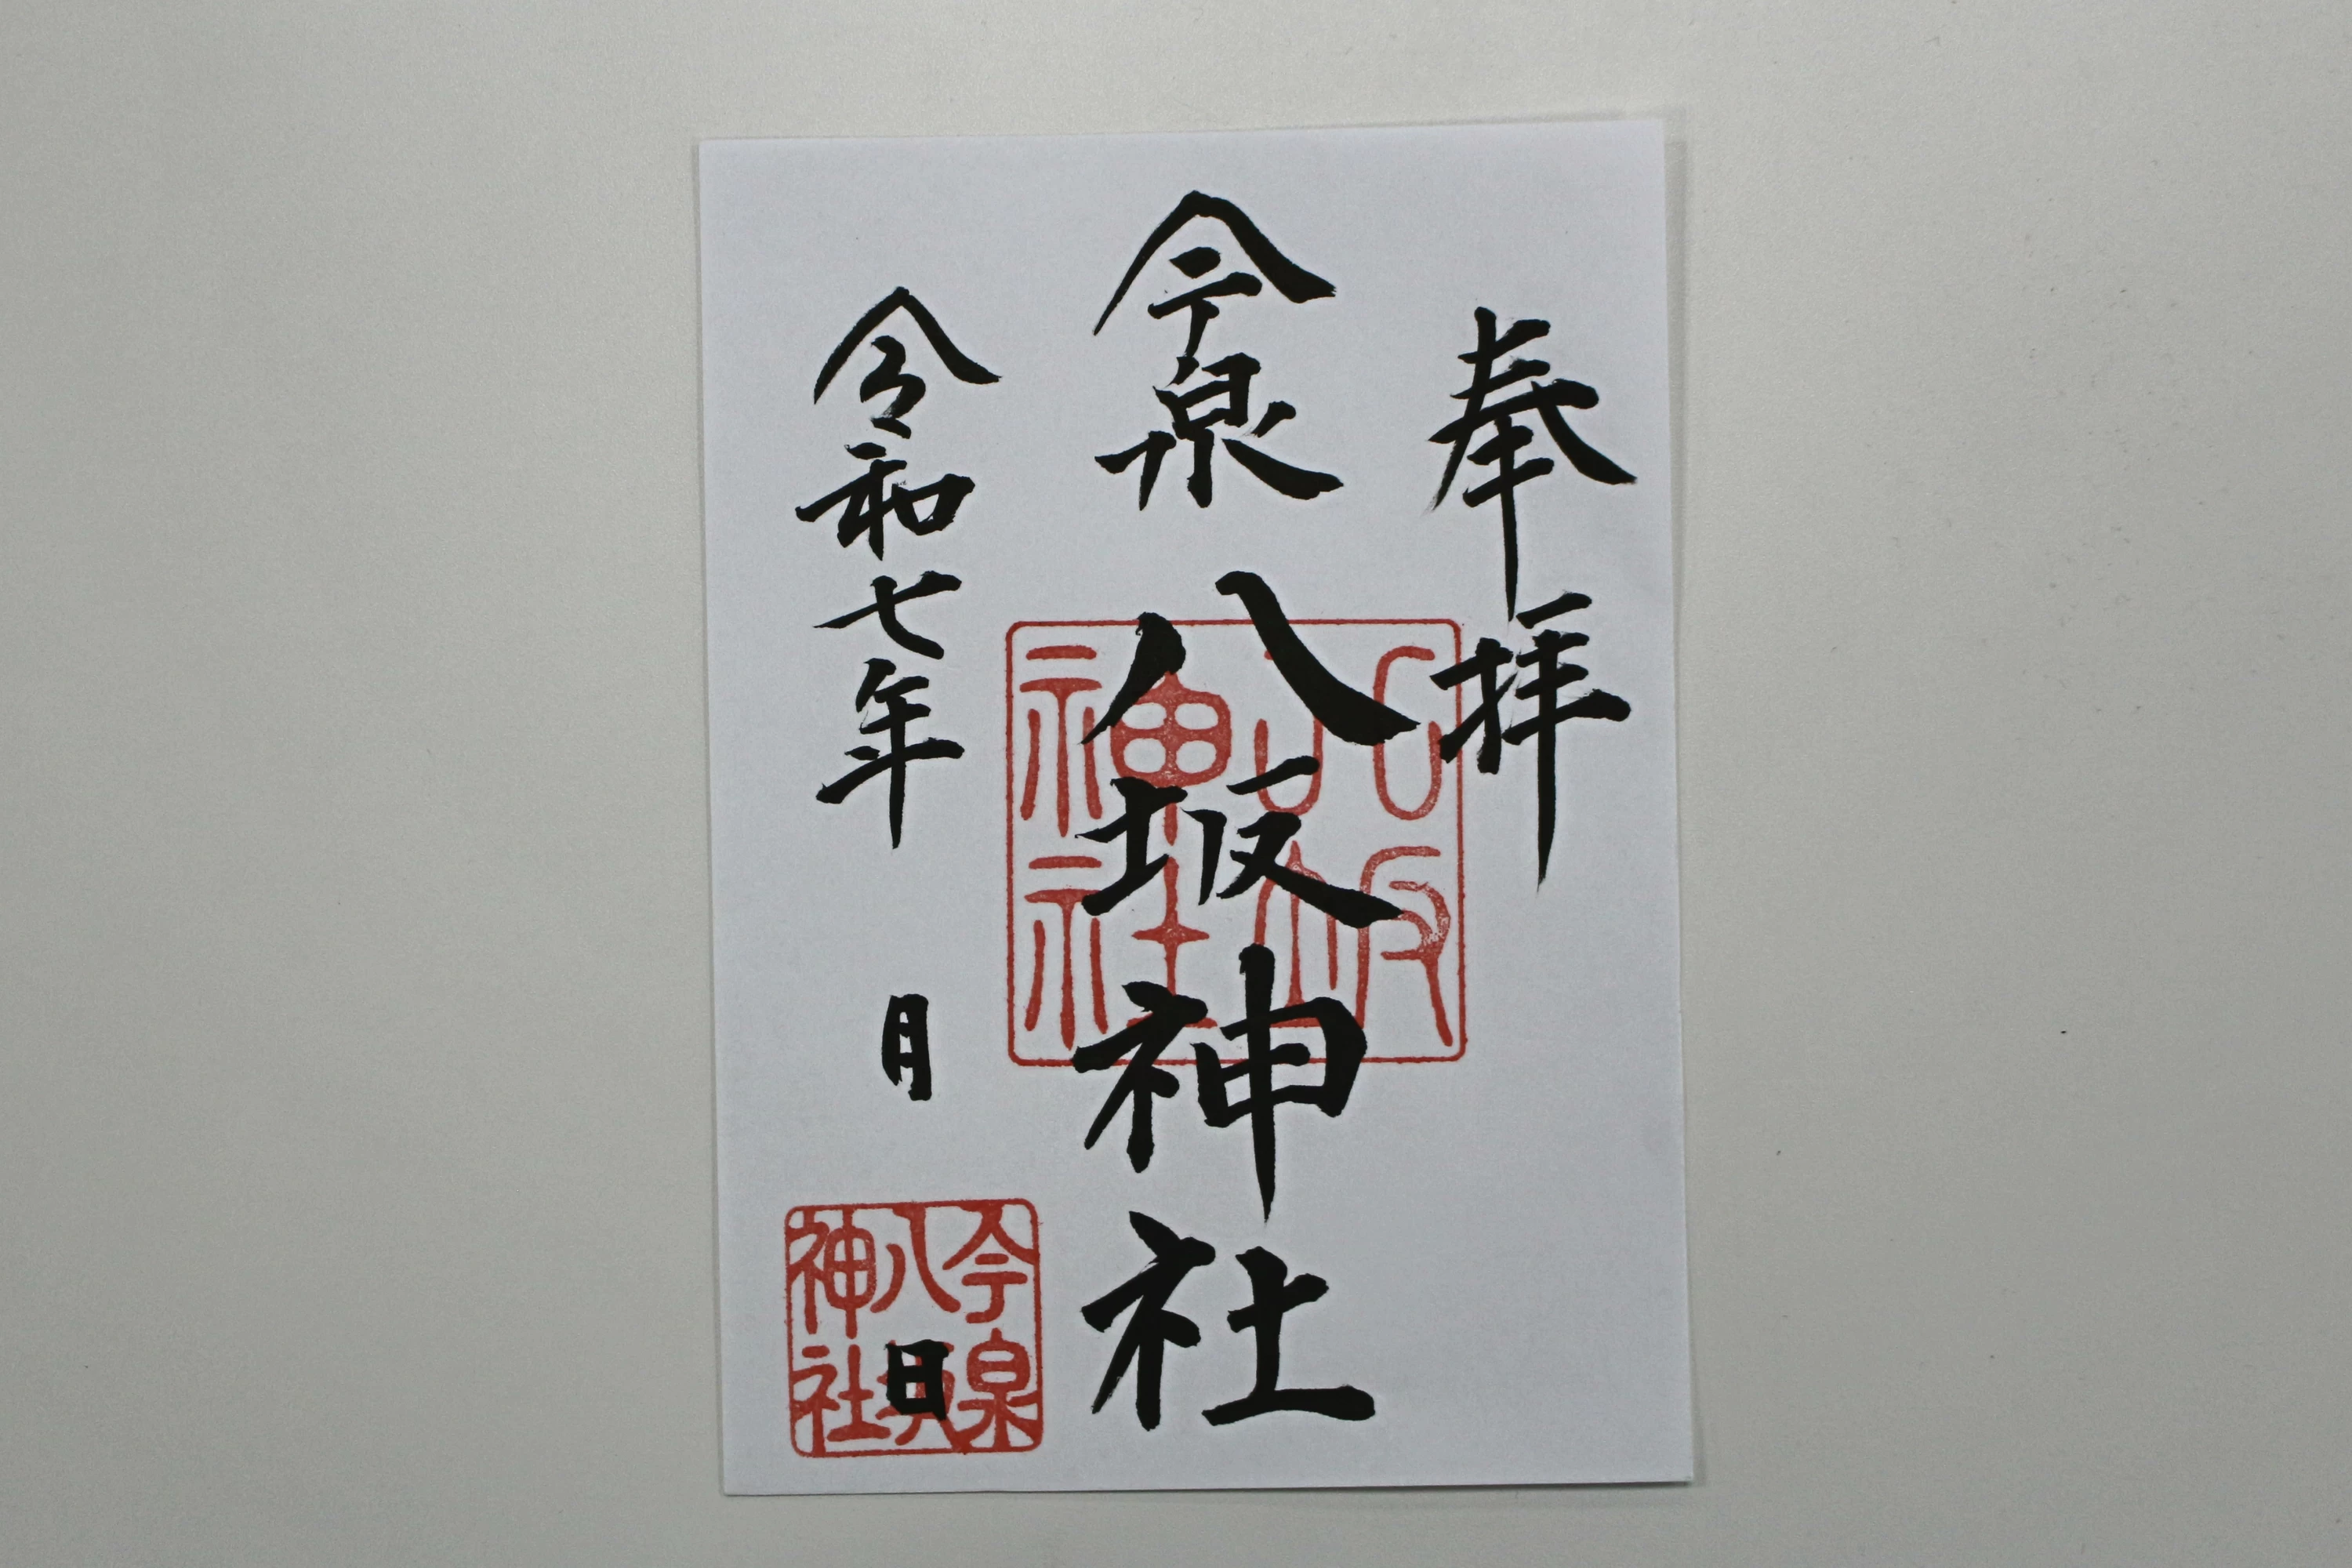 奉拝
今泉 八坂神社
令和七年 月 日
八坂
神社
今泉
八坂
神社